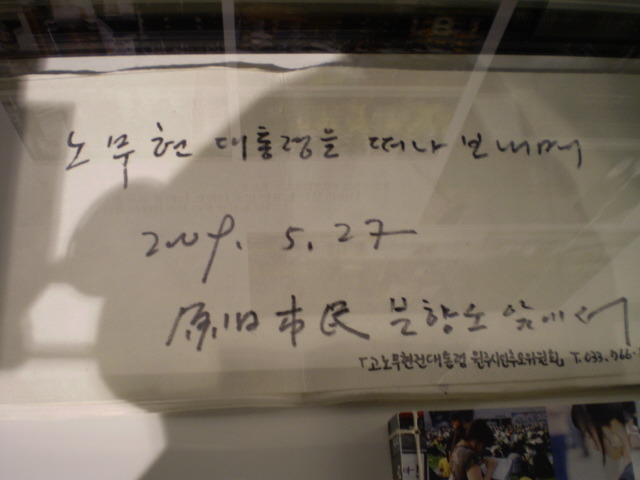 노무현 대통령을 떠나 보내며
2009. 5. 27
原州市民 분향소 앞에서
「고노무현전대통령 원주시민추모위원회」 T. 033. 766.